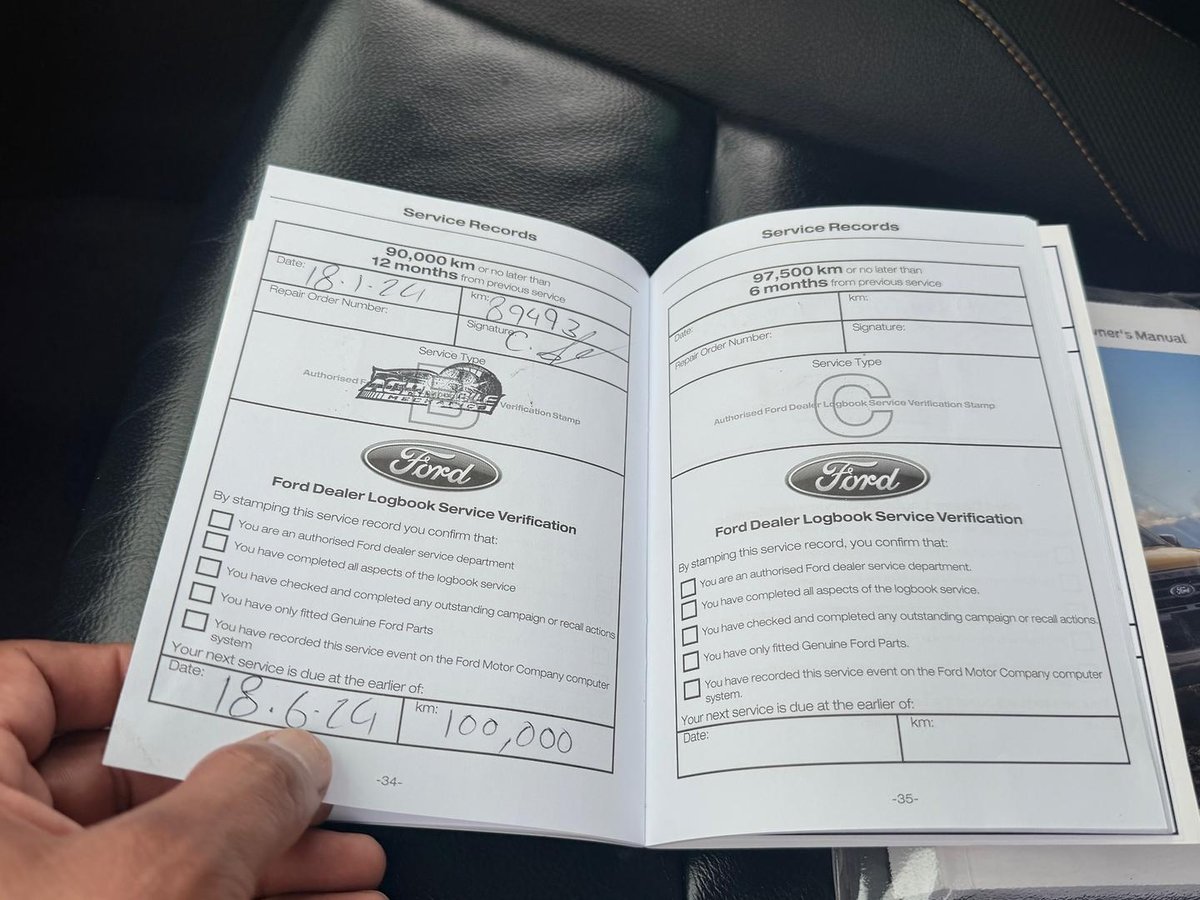 Service Records
90,000 km or no later than
12 months from previous service
Date: 18.1.24
km: 89493
Repair Order Number:
Signature:
Service Type
B
Verification Stamp
MECHANICS
Ford
Ford Dealer Logbook Service Verification
By stamping this service record you confirm that:
You are an authorised Ford dealer service department
You have completed all aspects of the logbook service
You have checked and completed any outstanding campaign or recall actions
You have only fitted Genuine Ford Parts
You have recorded this service event on the Ford Motor Company computer
system
Your next service is due at the earlier of:
Date: 18.6.24
km: 100,000
-34-
Service Records
97,500 km or no later than
6 months from previous service
Date:
km:
Repair Order Number:
Signature:
Service Type
C
Authorised Ford Dealer Logbook Service Verification Stamp
Ford
Ford Dealer Logbook Service Verification
By stamping this service record, you confirm that:
You are an authorised Ford dealer service department.
You have completed all aspects of the logbook service.
You have checked and completed any outstanding campaign or recall actions.
You have only fitted Genuine Ford Parts.
You have recorded this service event on the Ford Motor Company computer
system.
Your next service is due at the earlier of:
Date:
km:
-35-
ner's Manual
Ford